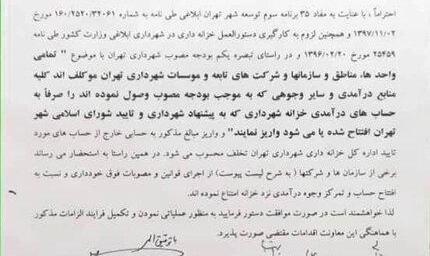 احتراماً، با عنایت به مفاد ۳۵ برنامه سوم توسعه شهر تهران ابلاغی طی نامه به شماره ۱۶۰/۲۵۲۰/۳۲۰۶۱
۱۳۹۷/۱۱/۰۲ و همچنین لزوم به کارگیری دستورالعمل خزانه داری در شهرداری ابلاغی وزارت کشور طی نامه
۲۵۴۵۹ مورخ ۱۳۹۶/۰۲/۲۰ و در راستای تبصره یکم بودجه مصوب شهرداری تهران با موضوع " تمامی
واحد ها، مناطق و سازمانها و شرکت های تابعه و موسسات شهرداری تهران موکلف اند کلیه
منابع درآمدی و سایر وجوهی که به موجب بودجه مصوب وصول نموده اند را صرفاً به
حساب های درآمدی خزانه شهرداری که به پیشنهاد شهرداری و تایید شورای اسلامی شهر
تهران افتتاح شده یا می شود واریز نمایند" و واریز مبالغ مذکور به حسابی خارج از حساب های مورد
تایید اداره کل خزانه داری شهرداری تهران تخلف محسوب می شود. در همین راستا به استحضار می رساند
برخی از سازمان ها و شرکتها ( به شرح لیست پیوست) از اجرای قوانین و مصوبات فوق خودداری و نسبت به
افتتاح حساب و تمرکز وجوه درآمدی نزد خزانه امتناع نموده اند.
لذا خواهشمند است در صورت موافقت دستور فرمایید به منظور عملیاتی نمودن و تکمیل فرایند الزامات مذکور
با هماهنگی این معاونت اقدامات مقتضی صورت پذیرد.